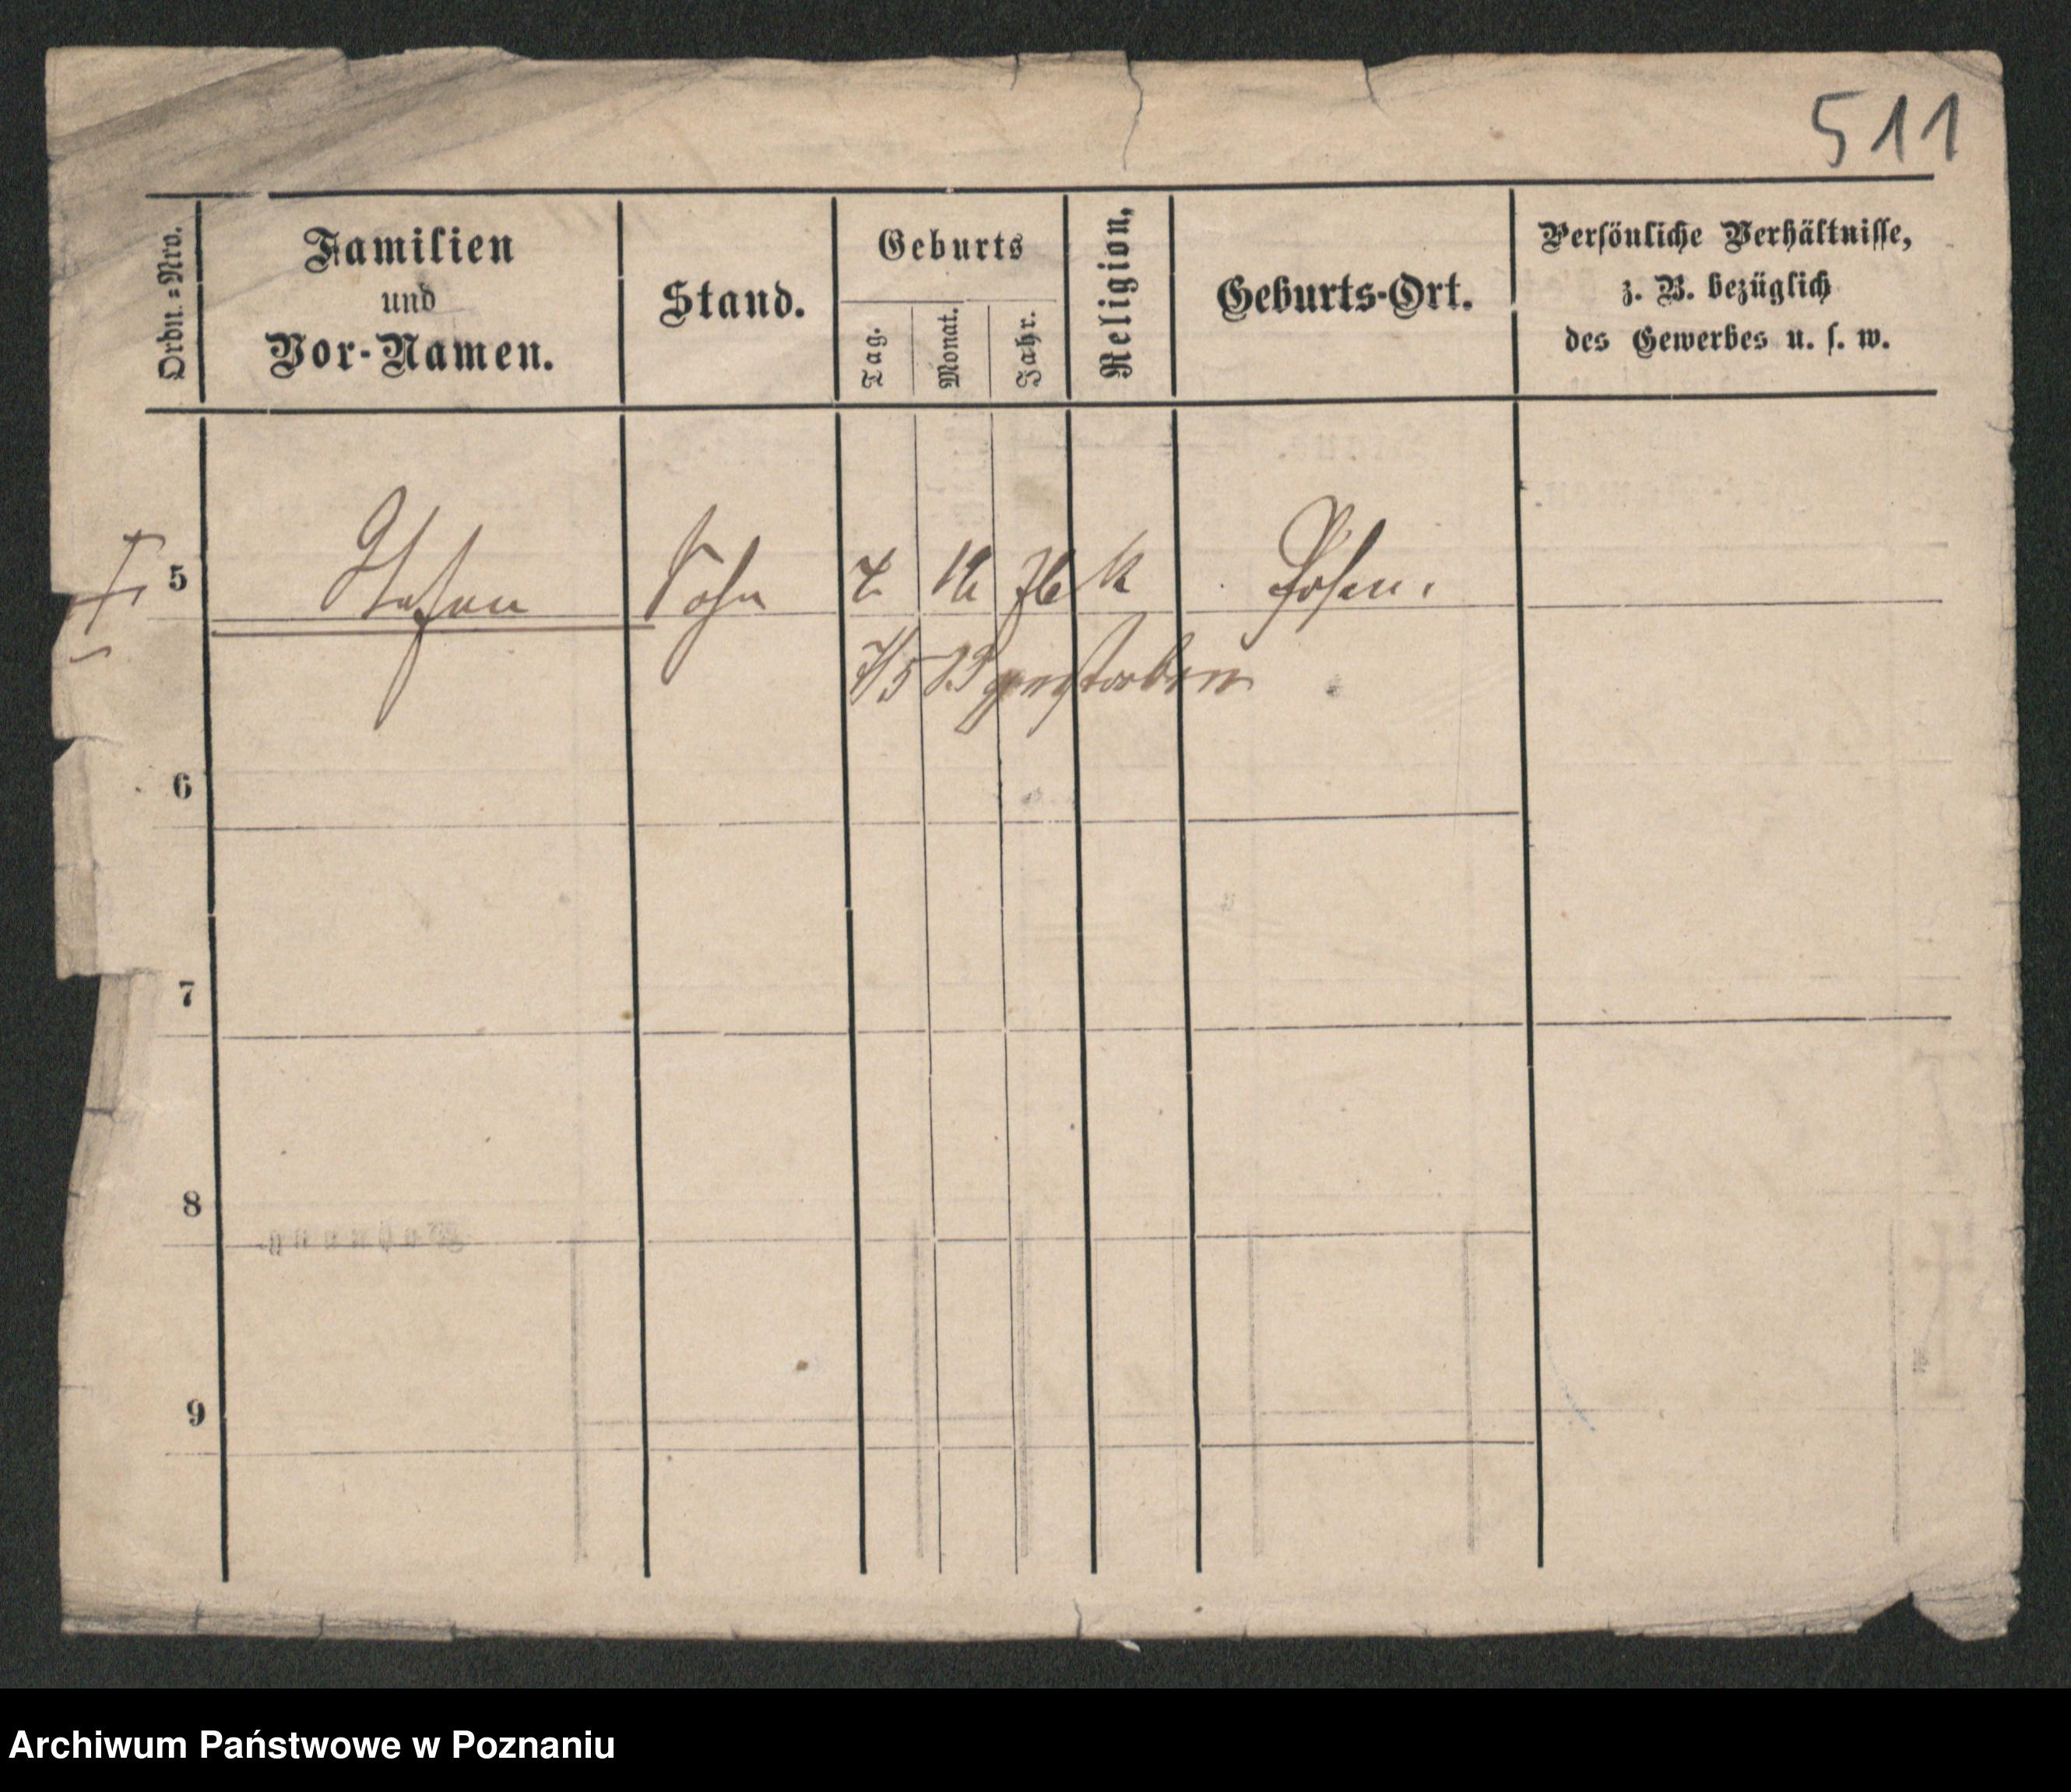 511
Ordn.=Nro.
Familien
und
Vor-Namen.
Stand.
Geburts
Tag.
Monat.
Jahr.
Religion,
Geburts-Ort.
Persönliche Verhältnisse,
z. B. bezüglich
des Gewerbes u. s. w.
5 Stefan Sohn 7 12 76 k Posen.
gestorben
6
7
8
9
Archiwum Państwowe w Poznaniu